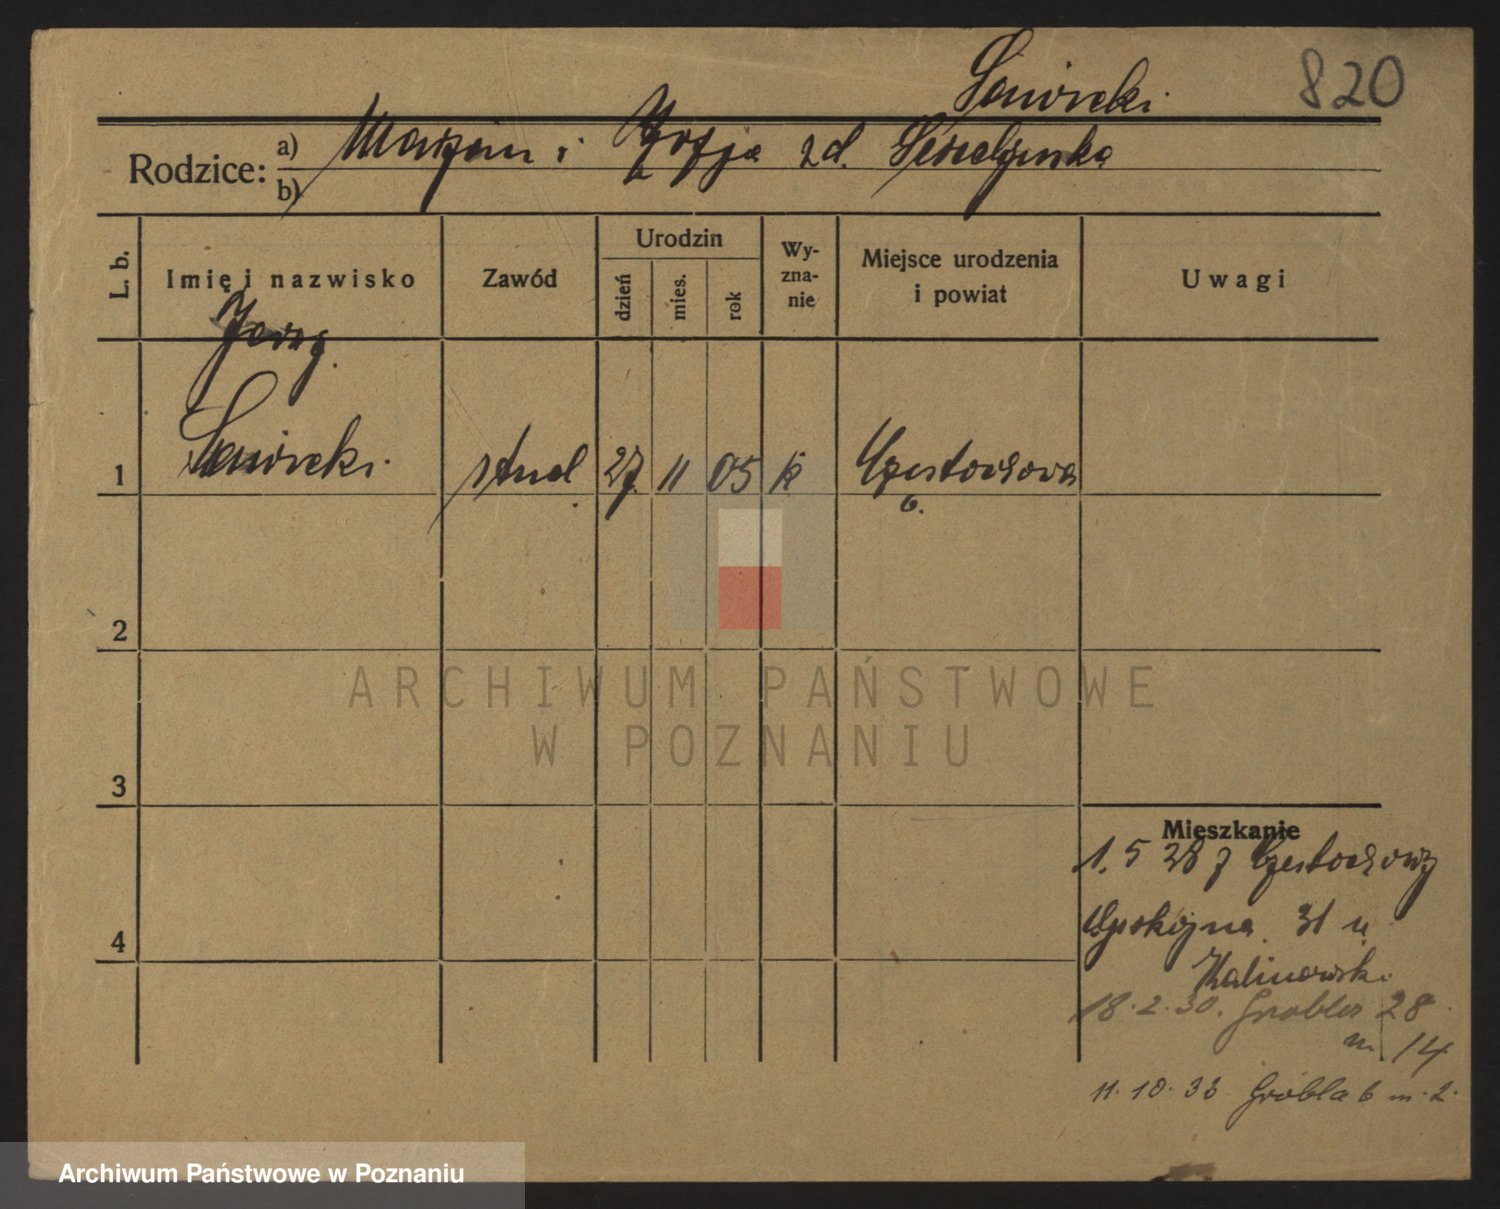 Sawicki
820
Rodzice: a) Marjan i Zofja zd.
b)
L. b.
Imię i nazwisko
Zawód
Urodzin
dzień
mies.
rok
Wy-
zna-
nie
Miejsce urodzenia
i powiat
Uwagi
Jerzy
1 Sawicki stud. 27 11 05 k Częstochowa
2
3
4
Mieszkanie
1. 5 28 z Częstochowy
Spokojna 31 u
Kalinowski
18.2.30. Grobla 28
m 14
11.10.33 Grobla 6 m. 2.
ARCHIWUM PAŃSTWOWE
W POZNANIU
Archiwum Państwowe w Poznaniu